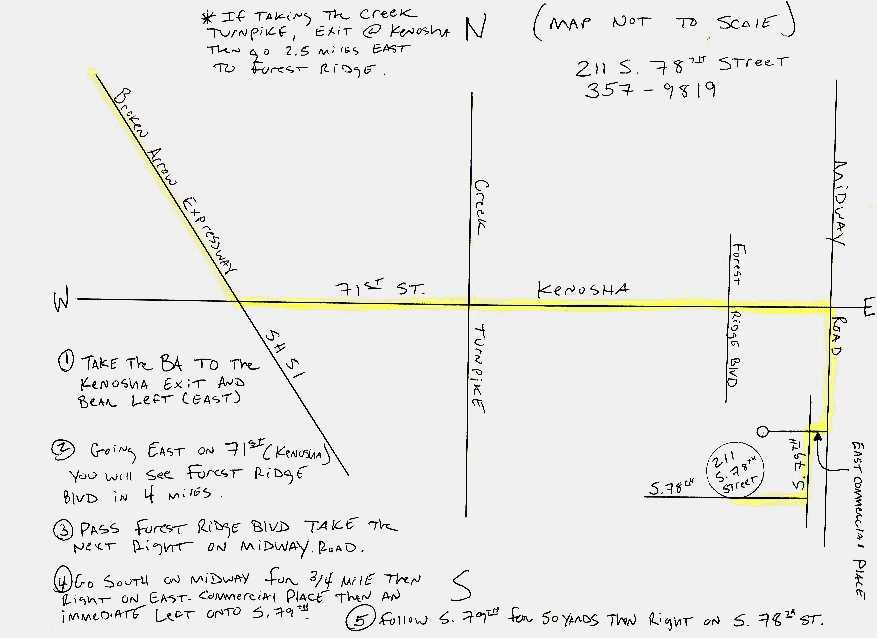 * If TAKING The Creek
TURNPIKE, EXIT @ KENOSHA
Then go 2.5 miles EAST
TO Forest RIDGE.
N
(MAP NOT TO SCALE)
211 S. 78TH STREET
357-9819
Broken Arrow Expressway
SH 51
Creek
TURNPIKE
Forest
RIDGE BLVD
MIDWAY
ROAD
W
71ST ST.
KENOSHA
E
① TAKE The BA TO The
KENOSHA EXIT AND
BEAR LEFT (EAST)
② Going EAST ON 71ST (KENOSHA)
You will see Forest RIDGE
BLVD in 4 miles.
③ PASS Forest RIDGE BLVD TAKE The
NEXT RIGHT ON MIDWAY ROAD.
④ Go SOUTH ON MIDWAY FOR 3/4 MILE Then
RIGHT ON EAST COMMERCIAL PLACE Then AN
IMMEDIATE LEFT ONTO S. 79TH.
S
⑤ Follow S. 79TH for 50 YARDS Then RIGHT ON S. 78TH ST.
S. 78TH
211
S. 78TH
STREET
S. 79TH
EAST COMMERCIAL PLACE